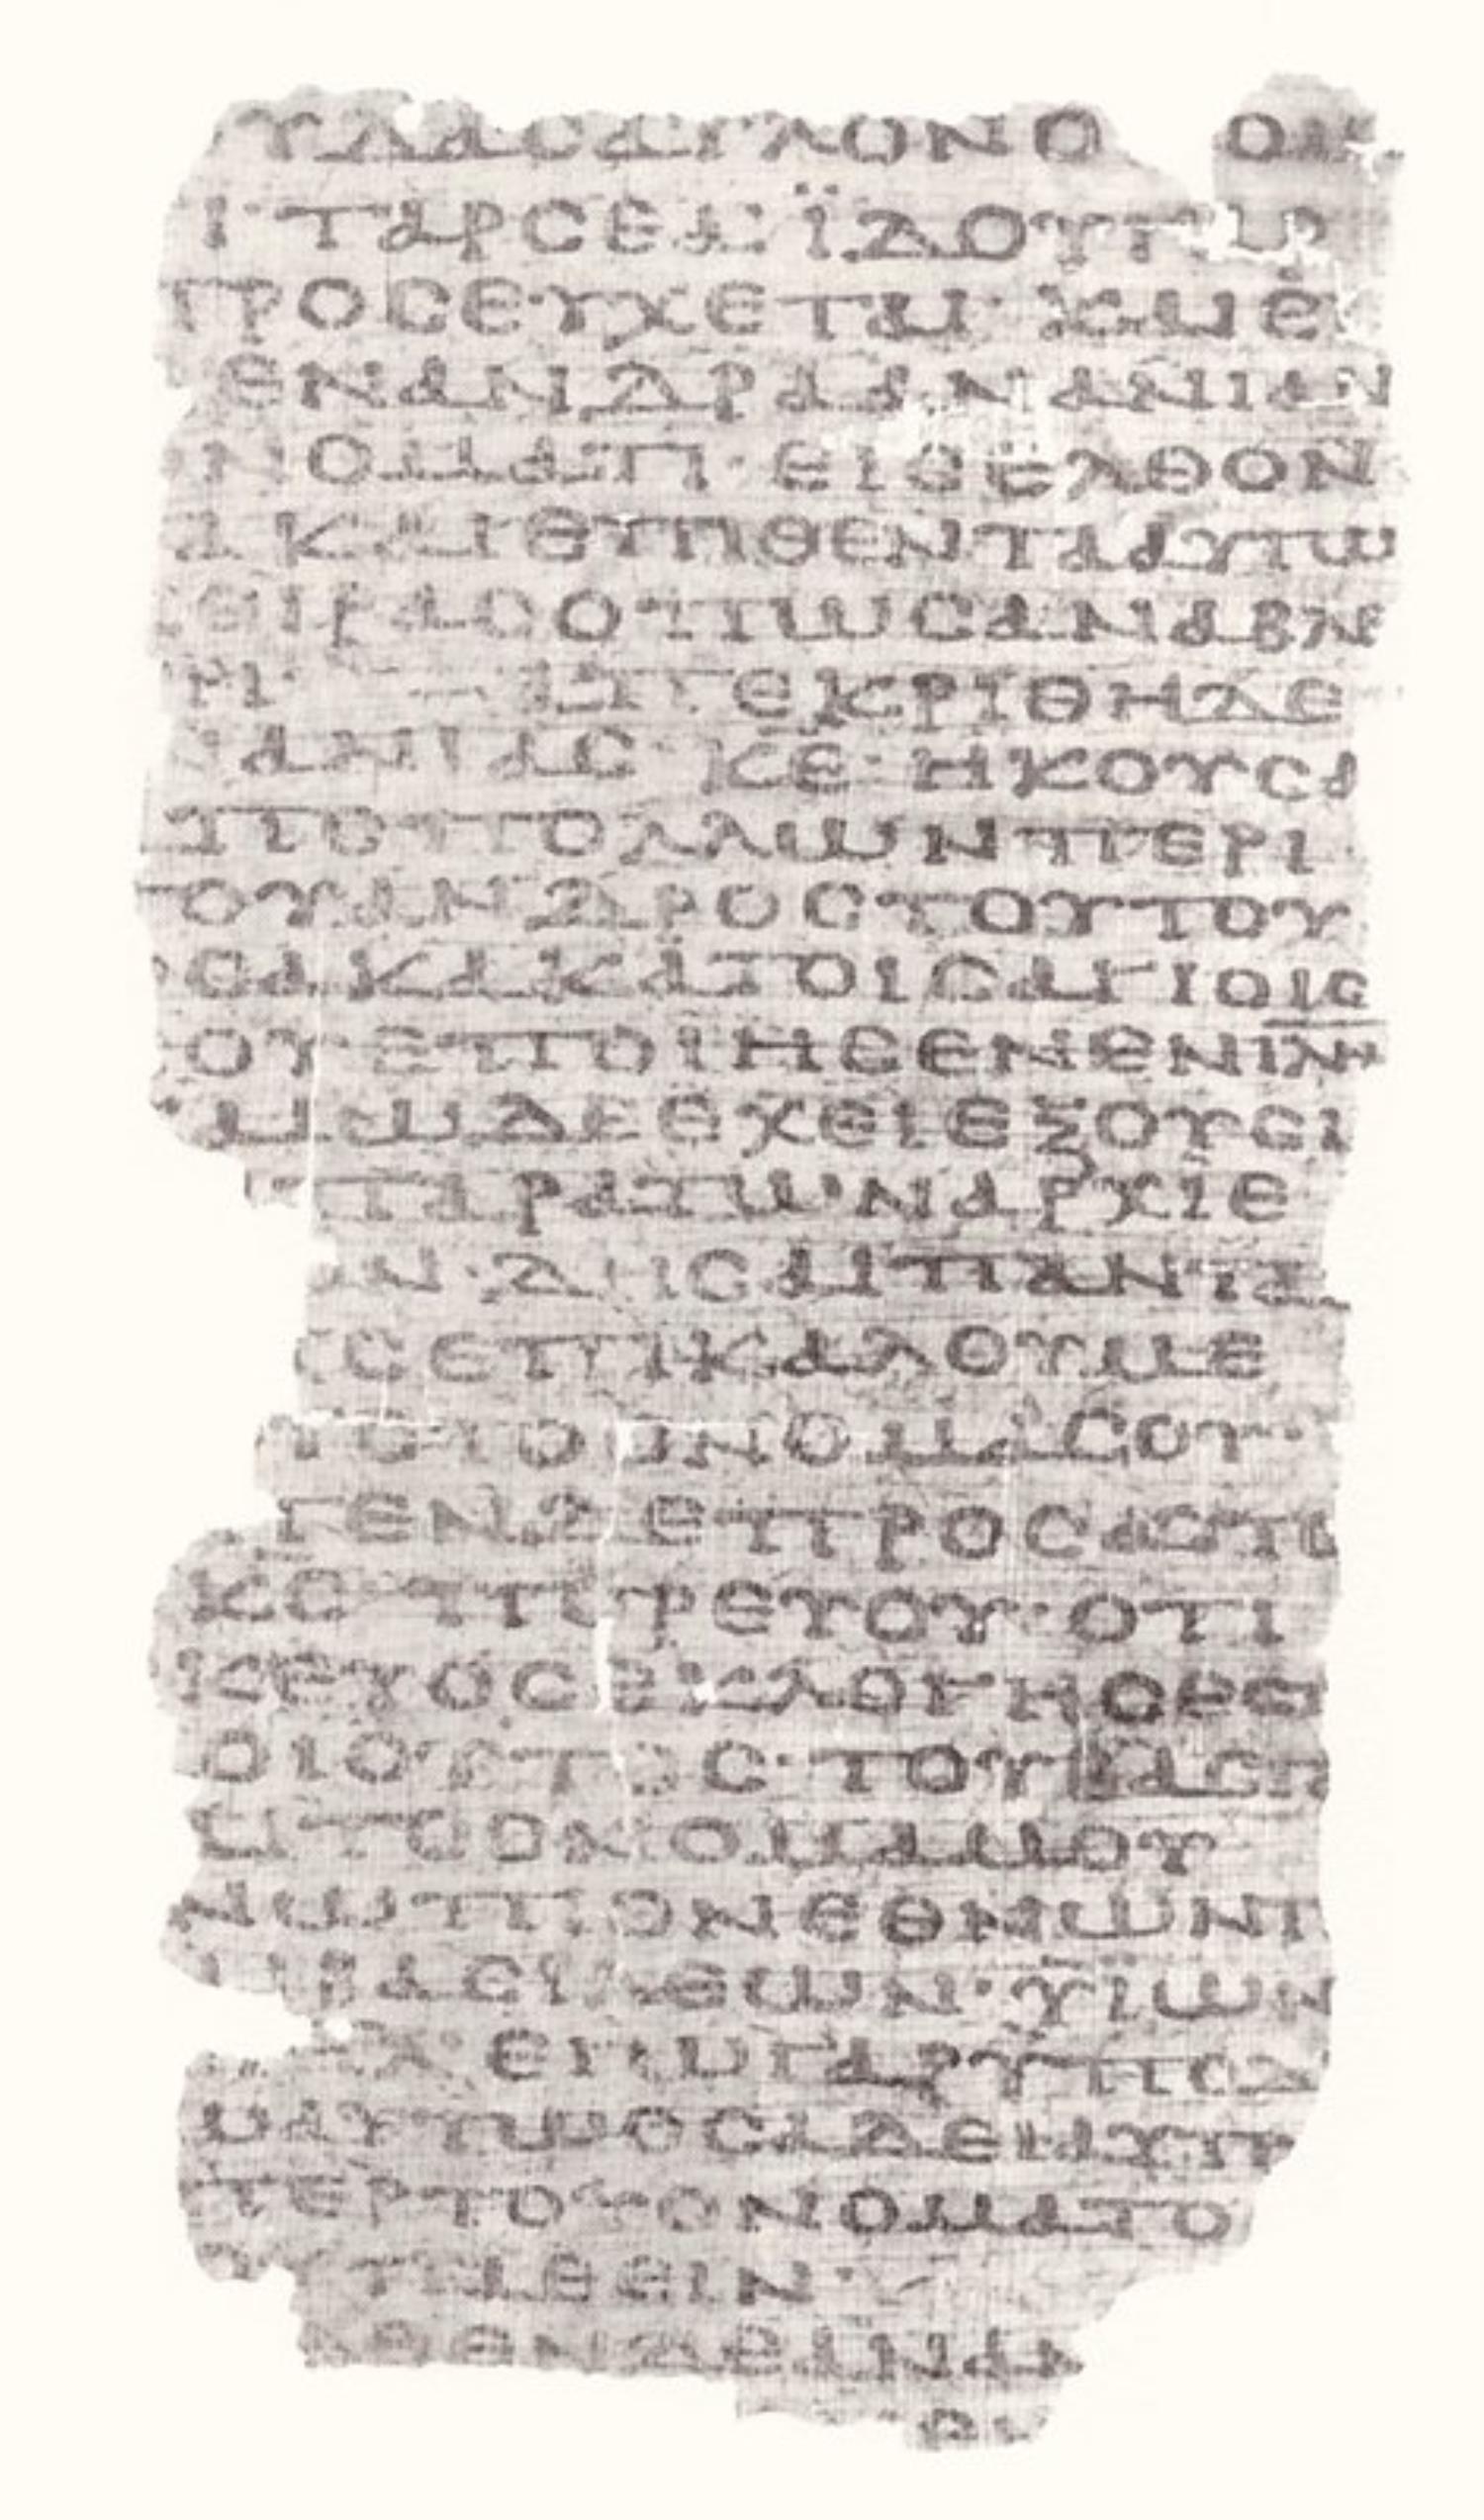 ΥΔΑϹΑΥΛΟΝΟ ΟΜ
Ι ΤΑΡϹΕΑ· ΪΔΟΥΓΑΡ
ΠΡΟϹΕΥΧΕΤΑΙ· ΚΑΙΕΙ
ΕΝΑΝΔΡΑΑΝΑΝΙΑΝ
ΝΟΜΑΤΙ· ΕΙϹΕΛΘΟΝ
Α ΚΑΙΕΠΙΘΕΝΤΑΑΥΤΩ
ΧΕΙΡΑϹΟΠΩϹΑΝΑΒΛΕ
ΑΠΕΚΡΙΘΗΔΕ
ΝΑΝΙΑϹ· ΚΕ· ΗΚΟΥϹΑ
ΑΠΟΠΟΛΛΩΝΠΕΡΙ
ΤΟΥΑΝΔΡΟϹΤΟΥΤΟΥ
ΟϹΑΚΑΚΑΤΟΙϹΑΓΙΟΙϹ
ϹΟΥΕΠΟΙΗϹΕΝΕΝΙΛΗΜ
ΑΙΩΔΕΕΧΕΙΕΞΟΥϹΙ
ΠΑΡΑΤΩΝΑΡΧΙΕ
ΩΝ· ΔΗϹΑΙΠΑΝΤΑ
ϹΕΠΙΚΑΛΟΥΜΕ
ΤΟΟΝΟΜΑϹΟΥ·
ΠΕΝΔΕΠΡΟϹΑΥΤΟ
ΚϹ· ΠΟΡΕΥΟΥ· ΟΤΙ
ϹΚΕΥΟϹΕΚΛΟΓΗϹΕϹΤΙ
ΟΙΟΥΤΟϹ· ΤΟΥΒΑϹΤΑ
ϹΑΙΤΟΟΝΟΜΑΜΟΥ
ΝΩΠΙΟΝΕΘΝΩΝΤΕ
ΑΙΒΑϹΙΛΕΩΝ· ΥΪΩΝ
ΕΓΩΓΑΡΥΠΟΔ
ΩΑΥΤΩΟϹΑΔΕΙΑΥΤΟ
ΠΕΡΤΟΥΟΝΟΜΑΤΟ
ΟΥΠΑΘΕΙΝ·
ΛΘΕΝΔΕΑΝΑΝ